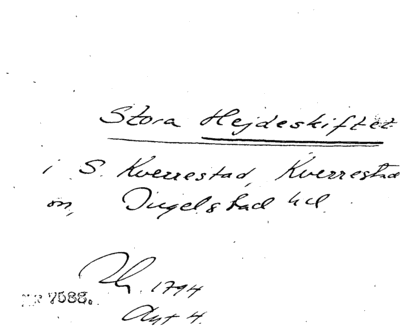 Stora Hejdeskiftet
i S. Kverrestad, Kverrestad
sn, Ingelstad hd.
1794
NR 7088.
Akt 4.